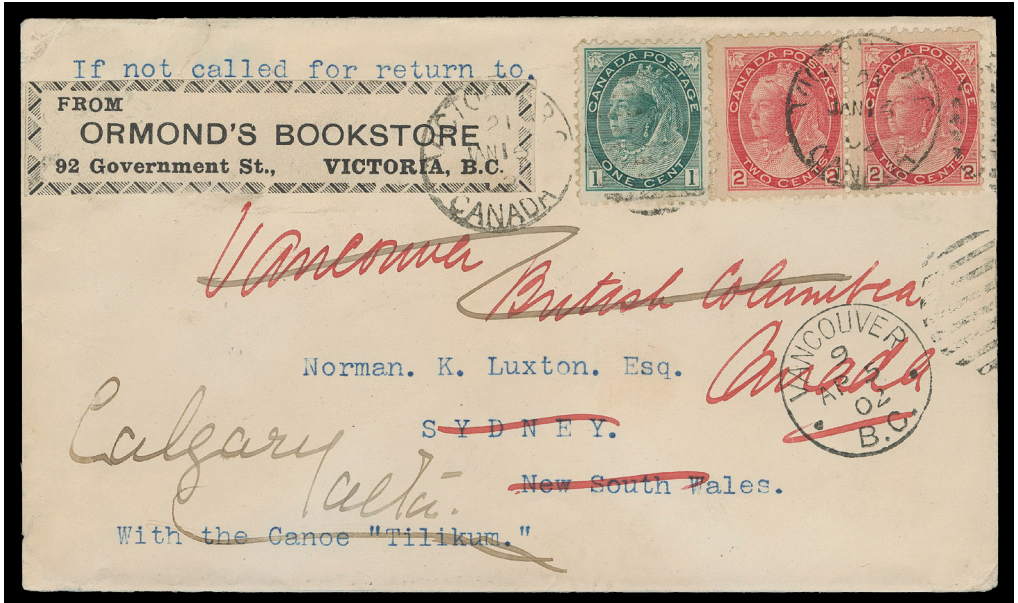 If not called for return to.
FROM
ORMOND'S BOOKSTORE
92 Government St., VICTORIA, B.C.
CANADA
CANADA POSTAGE
1 ONE CENT 1
CANADA POSTAGE
2 TWO CENTS 2
CANADA POSTAGE
2 TWO CENTS 2
Vancouver
British Columbia
Canada
VANCOUVER
9
AP 5
02
B.C.
Norman. K. Luxton. Esq.
SYDNEY.
New South Wales.
Calgary
alta.
With the Canoe "Tilikum."